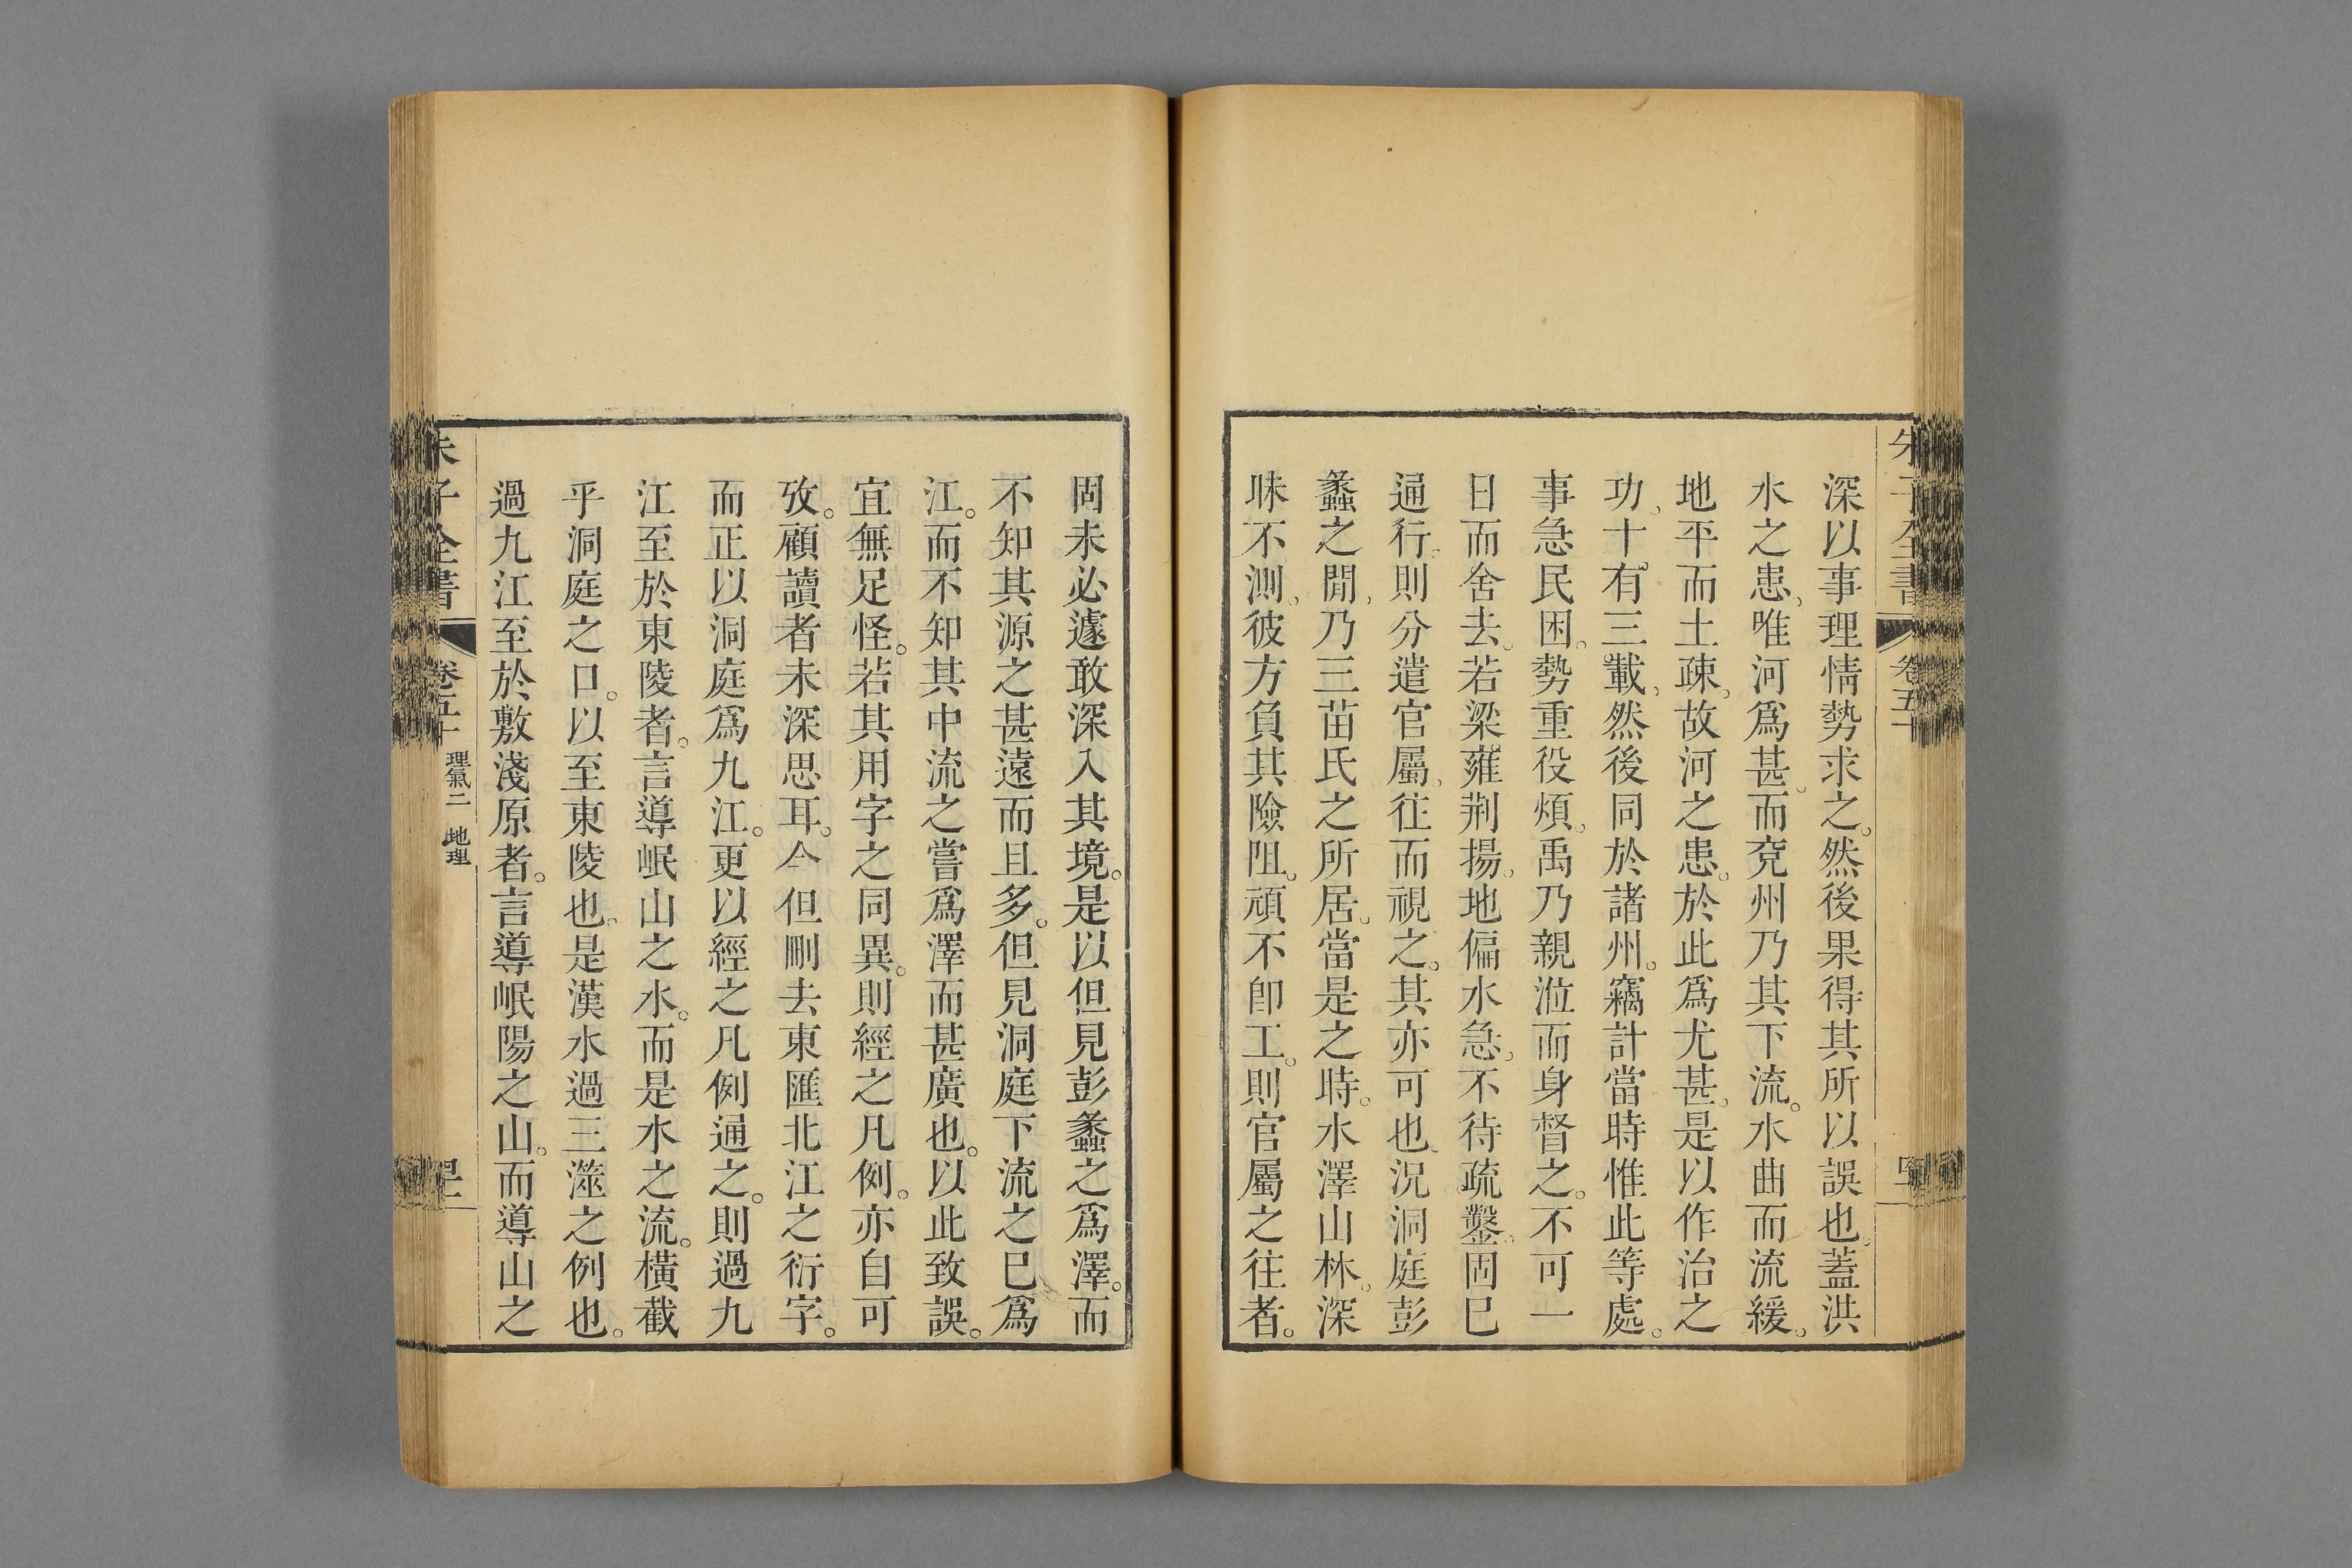 深以事理情勢求之。然後果得其所以誤也。蓋洪
水之患、唯河爲甚。而兗州乃其下流。水曲而流緩。
地平而土疎。故河之患。於此爲尤甚。是以作治之
功、十有三載、然後同於諸州。竊計當時惟此等處。
事急民困。勢重役煩。禹乃親涖而身督之。不可一
日而舍去。若梁雍荆揚。地偏水急、不待疏鑿。固已
通行、則分遣官屬、往而視之。其亦可也。況洞庭彭
蠡之閒、乃三苗氏之所居。當是之時。水澤山林。深
昧不測、彼方負其險阻。頑不卽工。則官屬之往者。
固未必遽敢深入其境。是以但見彭蠡之爲澤。而
不知其源之甚遠而且多。但見洞庭下流之已爲
江。而不知其中流之嘗爲澤而甚廣也。以此致誤。
宜無足怪。若其用字之同異。則經之凡例。亦自可
攷。顧讀者未深思耳。今但刪去東匯北江之衍字。
而正以洞庭爲九江。更以經之凡例通之。則過九
江至於東陵者。言導岷山之水。而是水之流。橫截
乎洞庭之口。以至東陵也。是漢水過三澨之例也。
過九江至於敷淺原者。言導岷陽之山。而導山之
朱子全書 卷五十 理氣二 地理